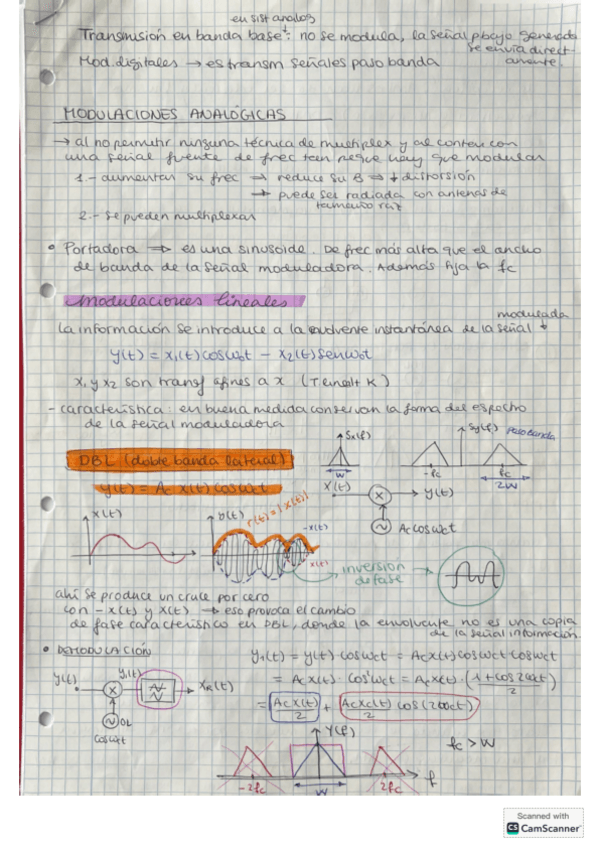 en sist analog
Transmisión en banda base: no se modula, la señal pbajo generada
se envía direct-
amente.
Mod. digitales → es transm señales paso banda
MODULACIONES ANALÓGICAS
→ al no permitir ninguna técnica de multiplex y al contar con
una señal fuente de frec hay que modular
1.- aumentar su frec ⇒ reduce su B ⇒ ↓ distorsión
→ puede ser radiada con antenas de
tamaño raz
2.- Se pueden multiplexar
• Portadora ⇒ es una sinusoide. De frec más alta que el ancho
de banda de la señal moduladora. Además fija la fc
modulaciones lineales
modulada
La información se introduce a la envolvente instantánea de la señal ↓
y(t) = x₁(t) cosω₀t − x₂(t) senω₀t
x₁ y x₂ son transf afines a x
- característica: en buena medida conservan la forma del espectro
de la señal moduladora
Sx(f)
Sy(f) paso banda
DBL (doble banda lateral)
W
-fc
fc
2W
y(t) = Ac x(t) cosωct
x(t)
y(t)
Ac cosωct
x(t)
r(t) = |x(t)|
-x(t)
x(t)
inversión
de fase
ahí se produce un cruce por cero
con -x(t) y x(t) → eso provoca el cambio
de fase característico en DBL, donde la envolvente no es una copia
de la señal información.
• DEMODULACIÓN
y₁(t) = y(t) cosωct = Ac x(t) cosωct cosωct
y(t)
y₁(t)
xR(t)
= Ac x(t) · cos²ωct = Ac x(t) · (1 + cos2ωct)/2
OL
cosωct
= Ac x(t)/2 + Ac x(t)/2 cos(2ωct)
Y(f)
fc > W
-2fc
W
2fc
f
Scanned with
CS CamScanner